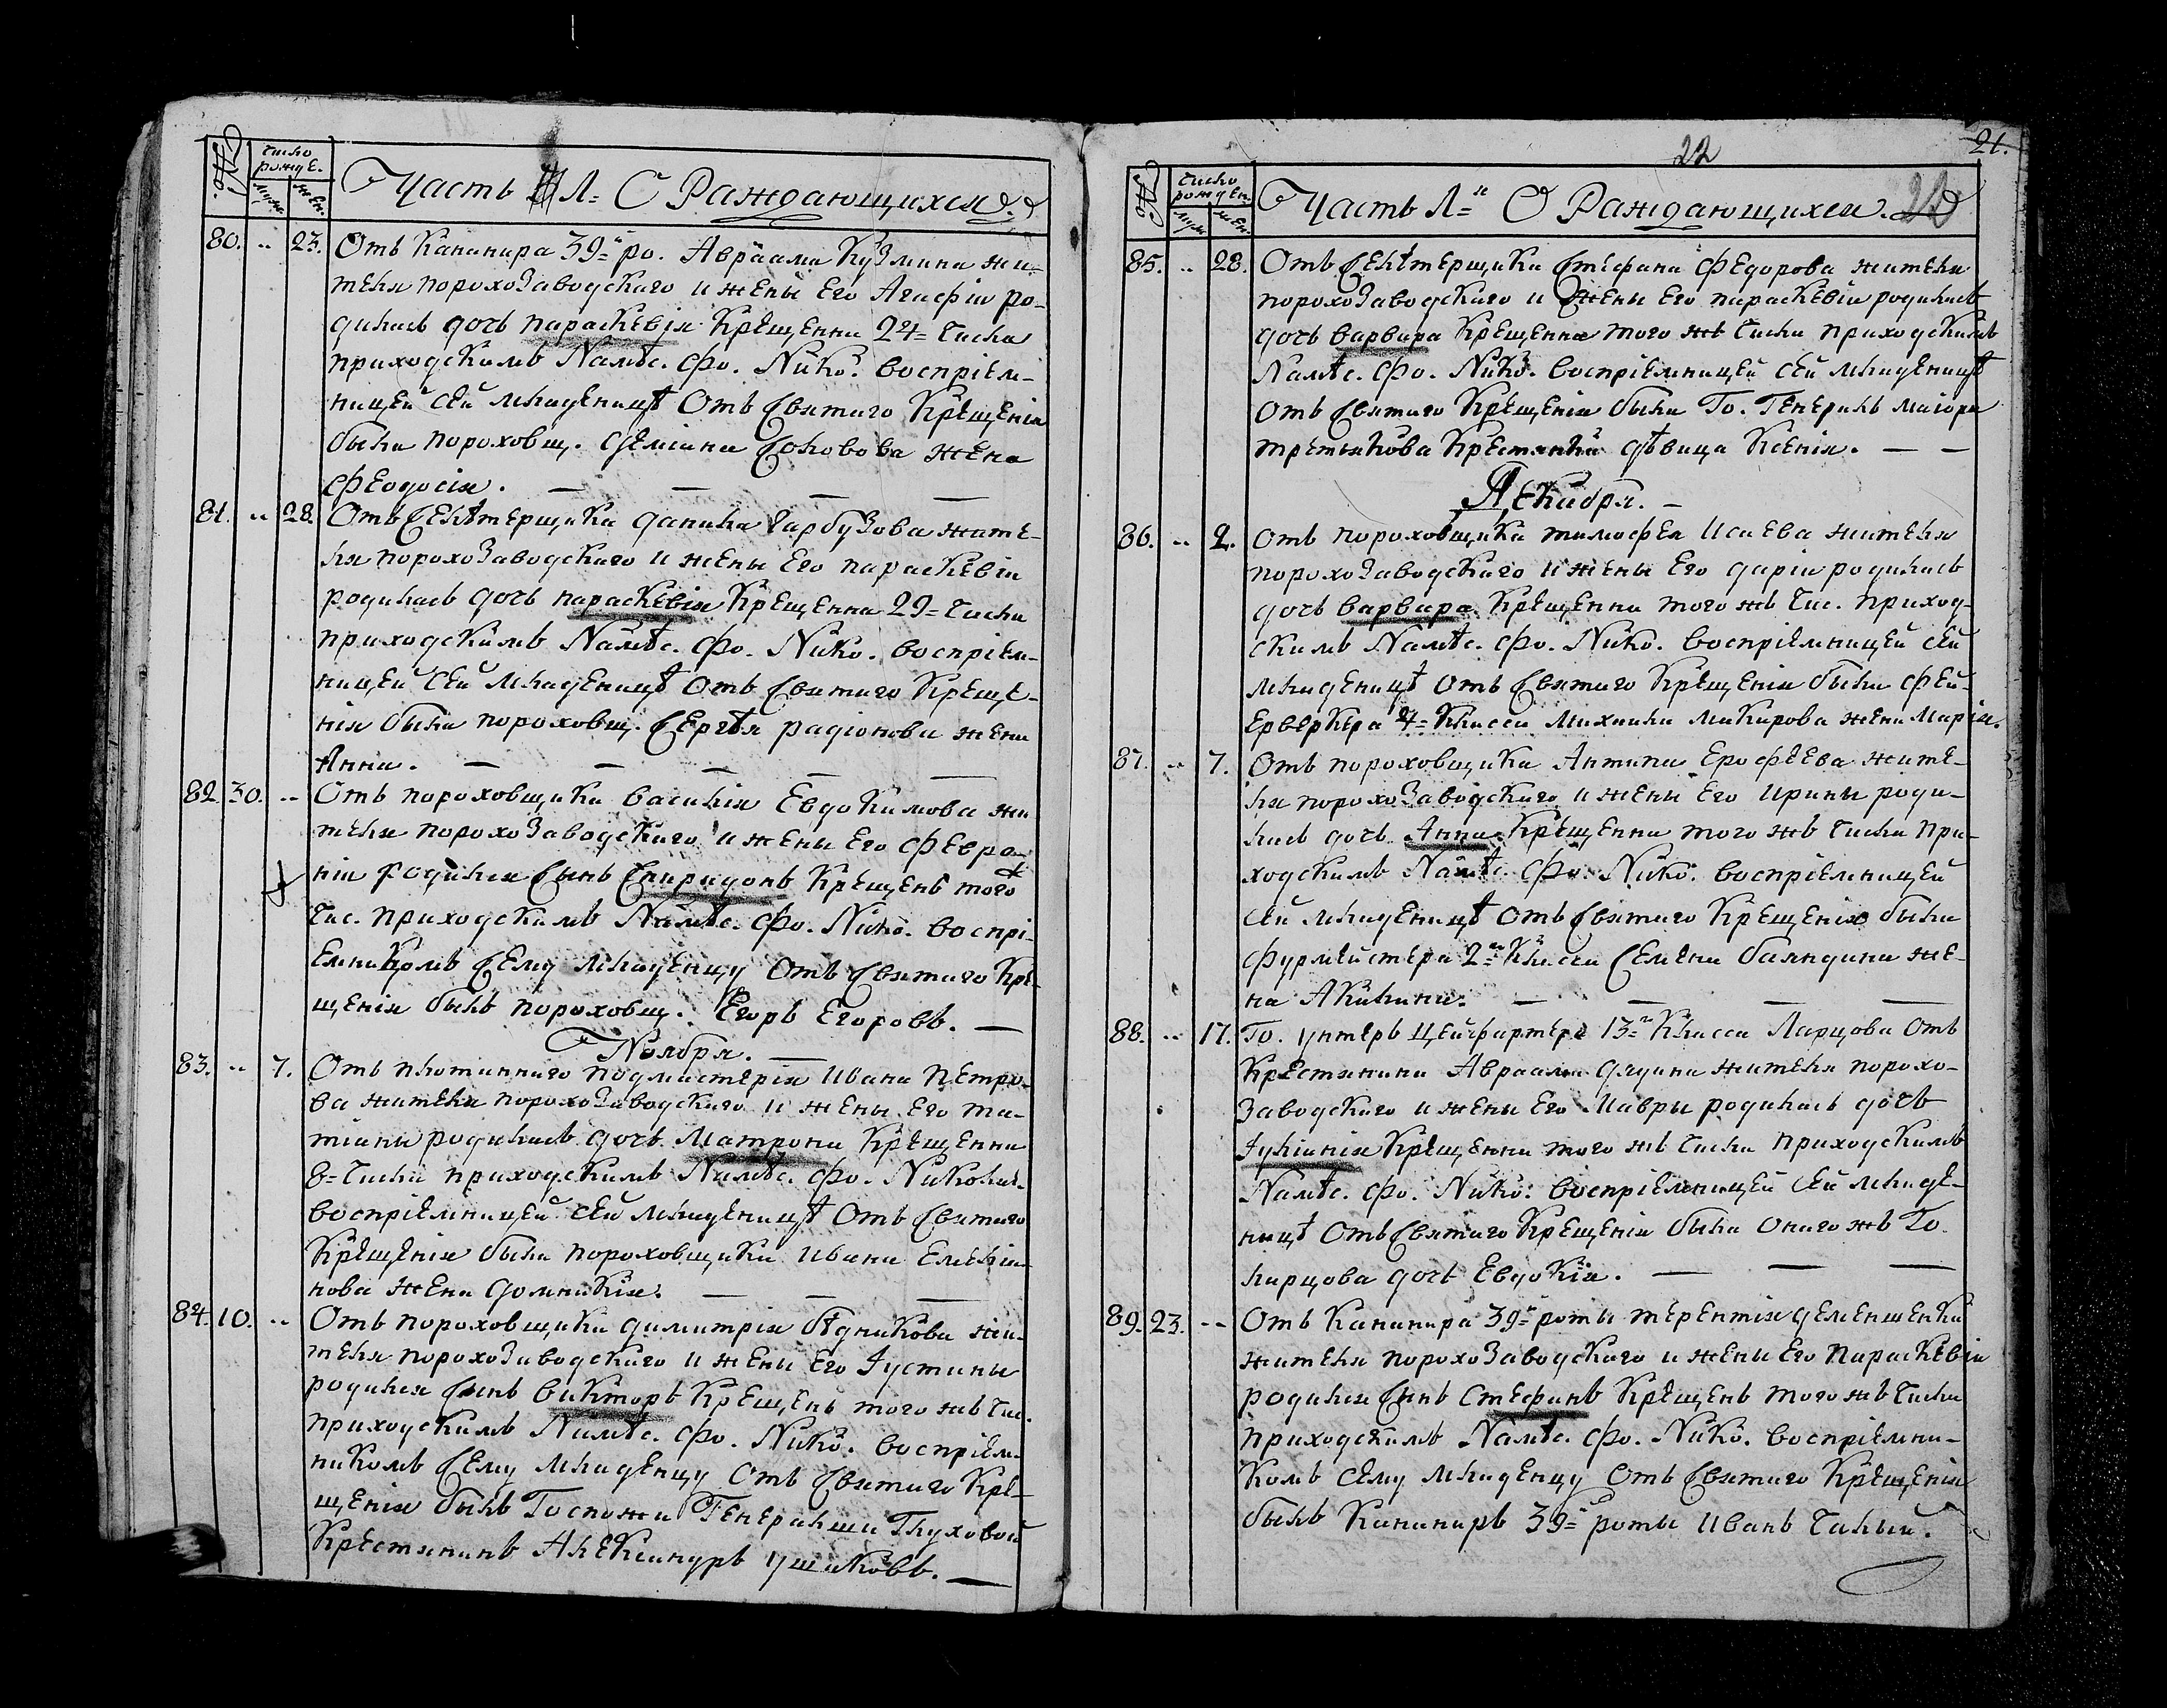 №
число рожде.
муж.
жен.
Часть 1я О Раждающихся.
80. 23. Отъ канинира 39й ро. Авраама Кузмина жи-
теля порохозаводскаго и жены его Агафіи ро-
дилась дочь параскевія крещенна 24= числа
приходскимъ Намѣс. Фо. Нико. воспріем-
ницей сей младеницѣ отъ святаго крещенія
была пороховщ. деміана соковова жена
феодосія.
81. 28. Отъ селѣтерщика данила гарбузова жите-
ля порохозаводскаго и жены его параскевіи
родилась дочь параскевія крещенна 29= числа
приходскимъ Намѣс. Фо. Нико. воспріем-
ницей сей младеницѣ отъ святаго креще-
нія была пороховщ. сергѣя радіонова жена
Анна.
82. 30. Отъ пороховщика василія Евдокимова жи
теля порохозаводскаго и жены его февро-
ніи родился сынъ спиридонъ крещенъ того
чис. приходскимъ Намѣс. Фо. Нико. воспрі-
емникомъ сему младенцу отъ святаго кре-
щенія былъ пороховщ. Егоръ Егоровъ.
Ноября.
83. 7. Отъ плотиннаго подмастерія ивана петро-
ва жителя порохозаводскаго и жены его та-
тіаны родилась дочь матрона крещенна
8= числа приходскимъ Намѣс. Фо. Николы.
воспріемницей сей младеницѣ отъ святаго
крещенія была пороховщика ивана Емеліа-
нова жена домникія.
84. 10. Отъ пороховщика димитрія бѣдникова жи-
теля порохозаводскаго и жены его Іустины
родился сынъ викторъ крещенъ того жъ чис.
приходскимъ Намѣс. Фо. Нико. воспріем-
никомъ сему младенцу отъ святаго кре-
щенія былъ Госпожи Генеральши Глуховой
крестянинъ Александръ ушаковъ.
22
21.
№
число рожден
муж
жен.
Часть 1я О Раждающихся.
85. 28. Отъ селѣтерщика стефана федорова жителя
порохозаводскаго и жены его параскевіи родилась
дочь варвара крещенна того жъ числа приходскимъ
Намѣс. Фо. Нико. воспріемницей сей младеницѣ
отъ святаго крещенія была Го. Генералъ маіора
третьякова крестянка дѣвица ксенія.
Декабря.
86. 2. Отъ пороховщика тимофея исаева жителя
порохозаводскаго и жены его даріи родилась
дочь варвара крещенна того жъ чис. приход-
скимъ Намѣс. Фо. Нико. воспріемницей сей
младеницѣ отъ святаго крещенія была фей-
ерверкера 4= класса михаила макарова жена марія.
87. 7. Отъ пороховщика Антипа Ерофеева жите-
ля порохозаводскаго и жены его ирины роди-
лась дочь Анна крещенна того жъ числа при-
ходскимъ Намѣс. Фо. Нико. воспріемницей
сей младеницѣ отъ святаго крещенія была
фурмейстера 2= класса семена баяндина же-
на Акилина.
88. 17. Го. унтеръ цейхвартера 13= класса Ларцова отъ
крестянина Авраама дядина жителя порохо-
заводскаго и жены его мавры родилась дочь
Іуліанія крещенна того жъ числа приходскимъ
Намѣс. Фо. Нико. воспріемницей сей младе-
ницѣ отъ святаго крещенія была онаго жъ Го
ларцова дочь Евдокія.
89. 23. Отъ канинира 39й роты терентія деменшенка
жителя порохозаводскаго и жены его параскевіи
родился сынъ стефанъ крещенъ того жъ числа
приходскимъ Намѣс. Фо. Нико. воспріемни-
комъ сему младенцу отъ святаго крещенія
былъ канониръ 39й роты иванъ чалый.